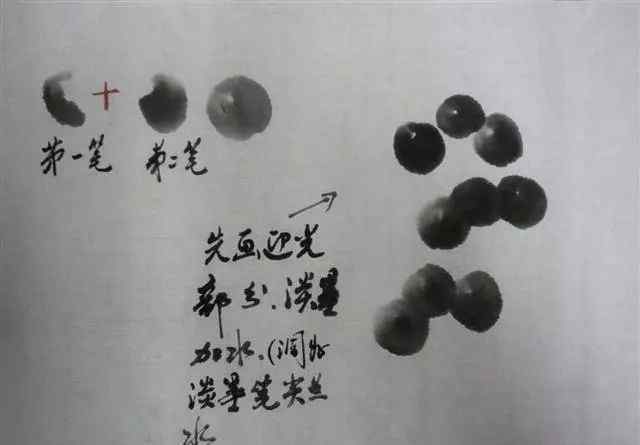 第一笔 第二笔
先画迎光
部分.淡墨
加水.(调好
淡墨笔尖点
水